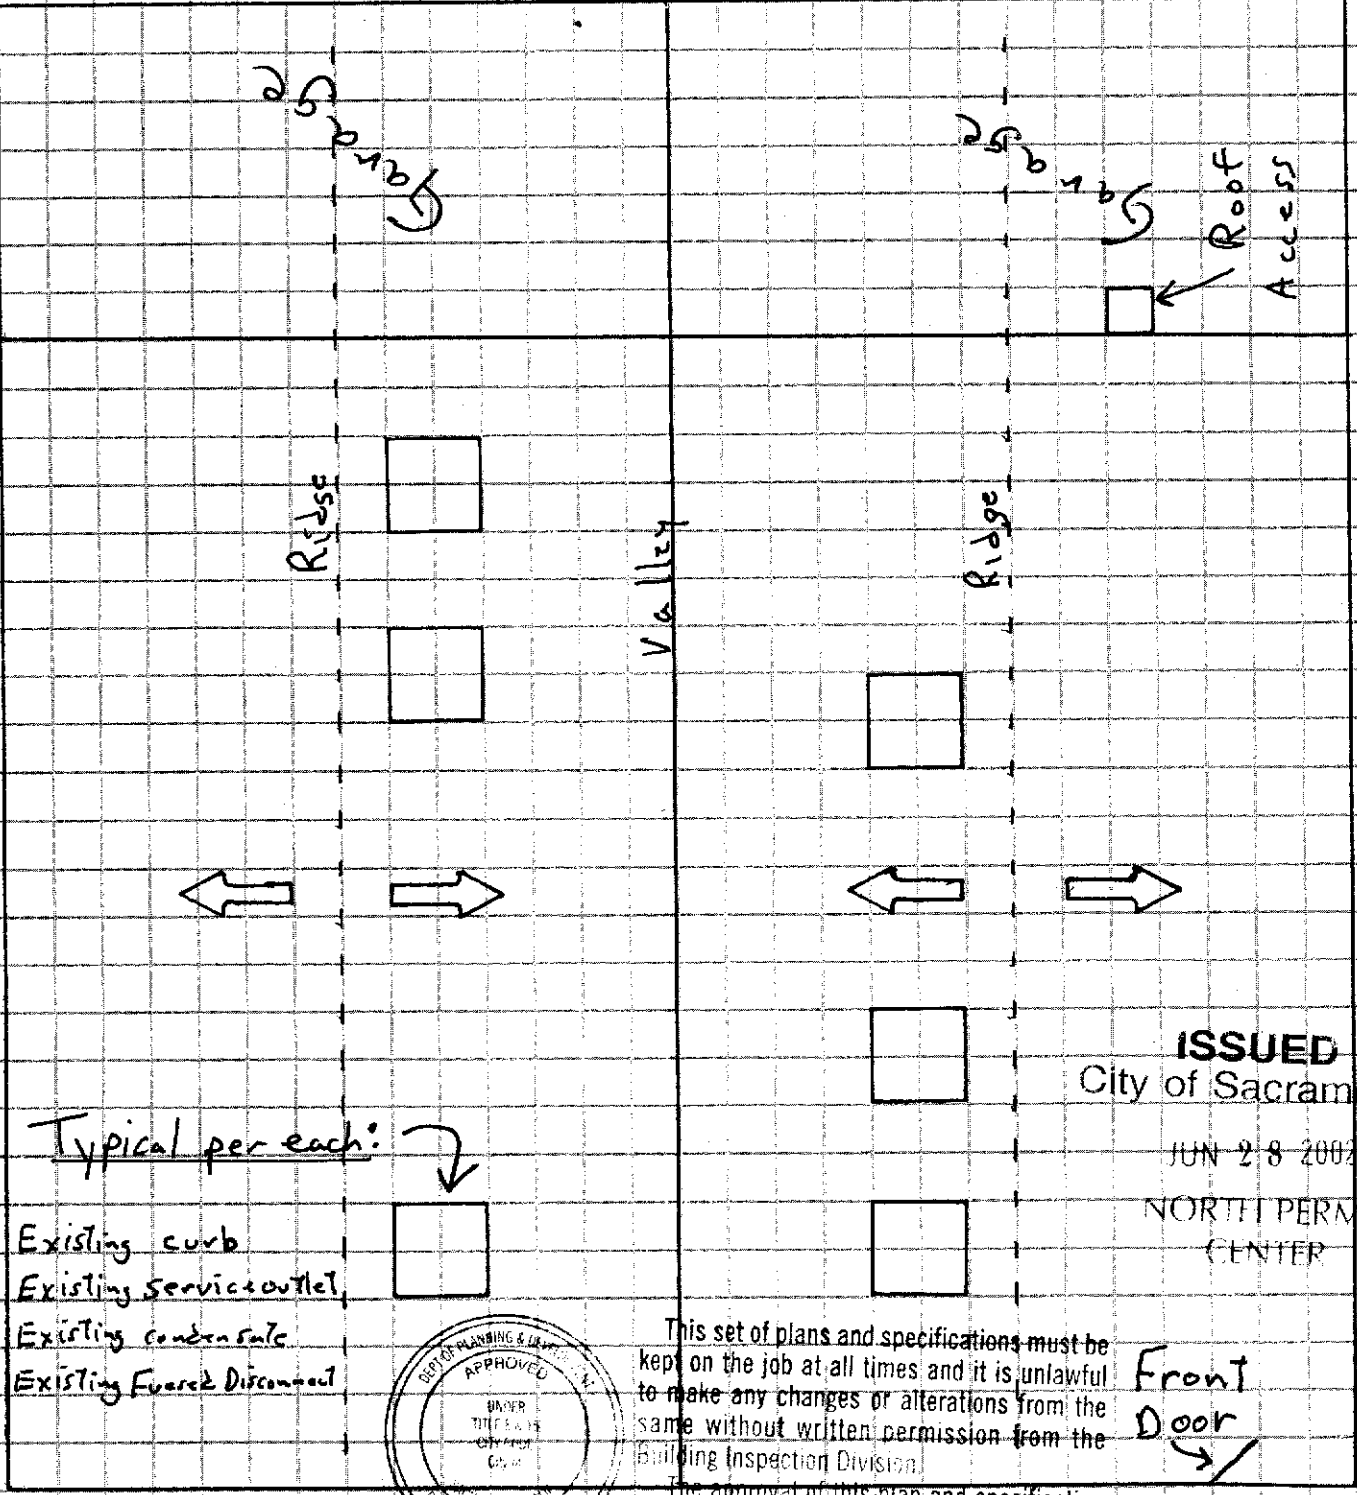 Roof
Access
Ridge
Valley
Ridge
ISSUED
City of Sacram
JUN 28 2002
NORTH PERM
CENTER
Typical per each:
Existing curb
Existing service outlet
Existing condensate
Existing Fused Disconnect
DEPT OF PLANNING &
APPROVED
UNDER
This set of plans and specifications must be
kept on the job at all times and it is unlawful
to make any changes or alterations from the
same without written permission from the
Building Inspection Division
The approval of this plan and
Front
Door